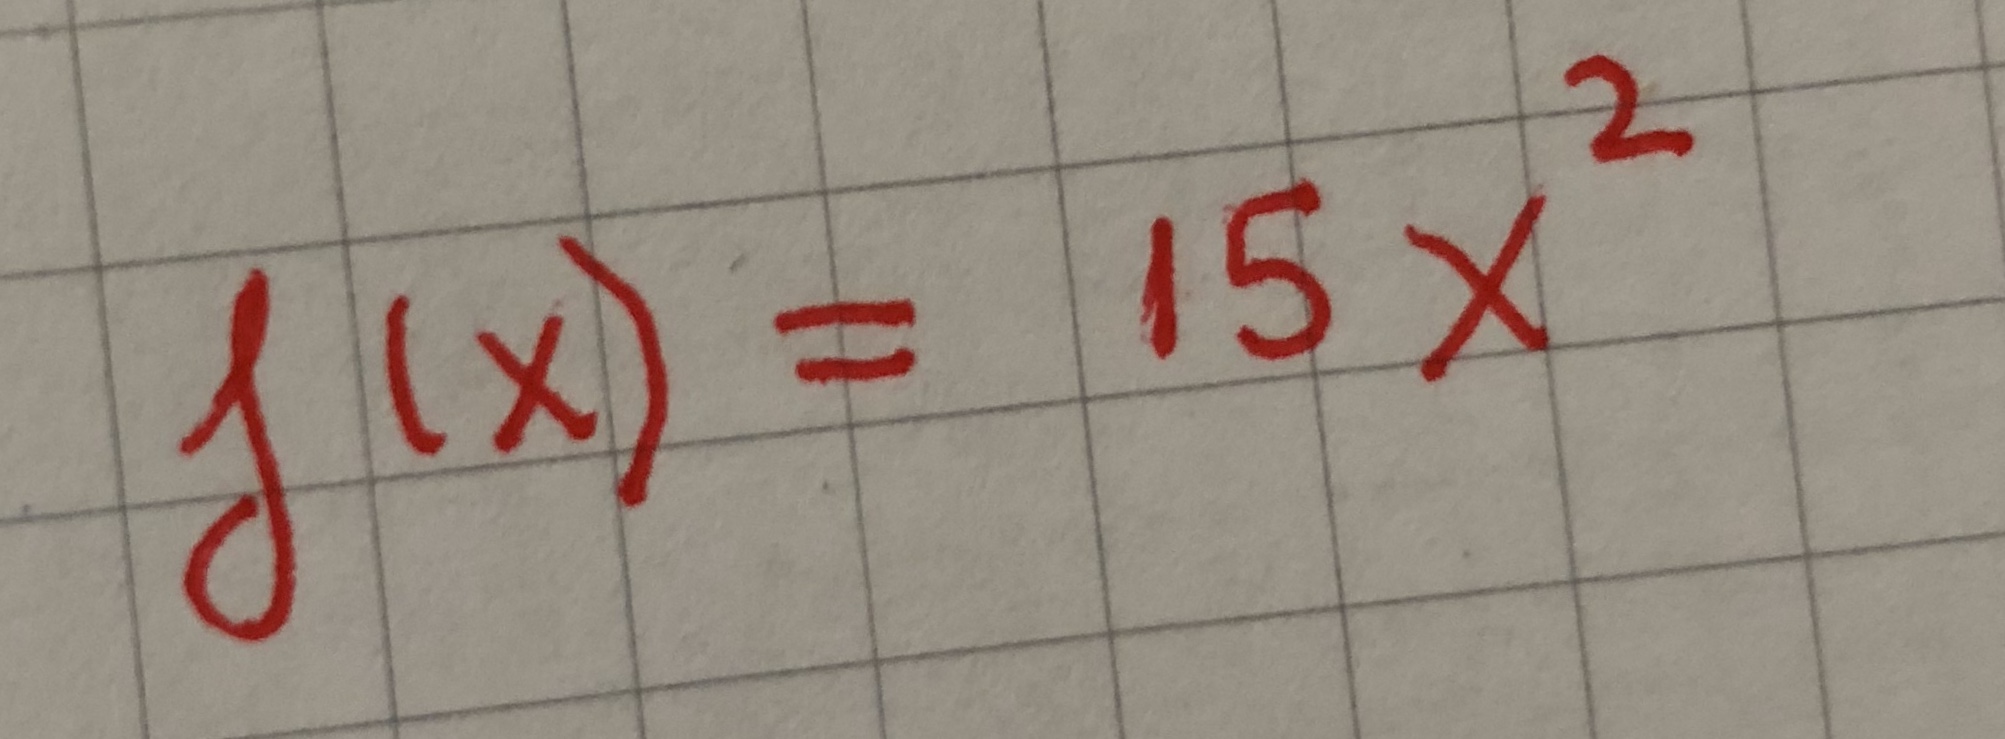 f(x) = 15x²